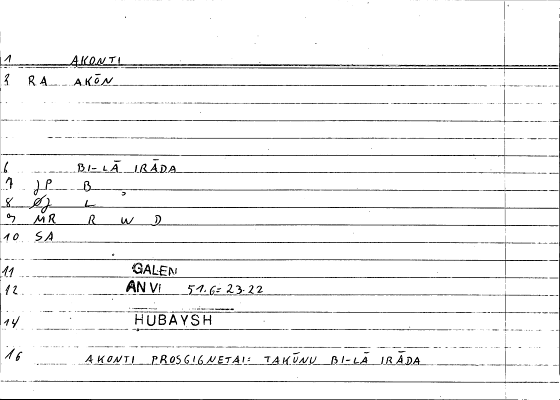 1 AKONTI
2 RA AKŌN
6 BI-LĀ IRĀDA
7 JP B
8 ØJ L
9 MR R W D
10 SA
11 GALEN
12 AN VI 51.6=23.22
14 HUBAYSH
16 AKONTI PROSGIGNETAI: TAKŪNU BI-LĀ IRĀDA